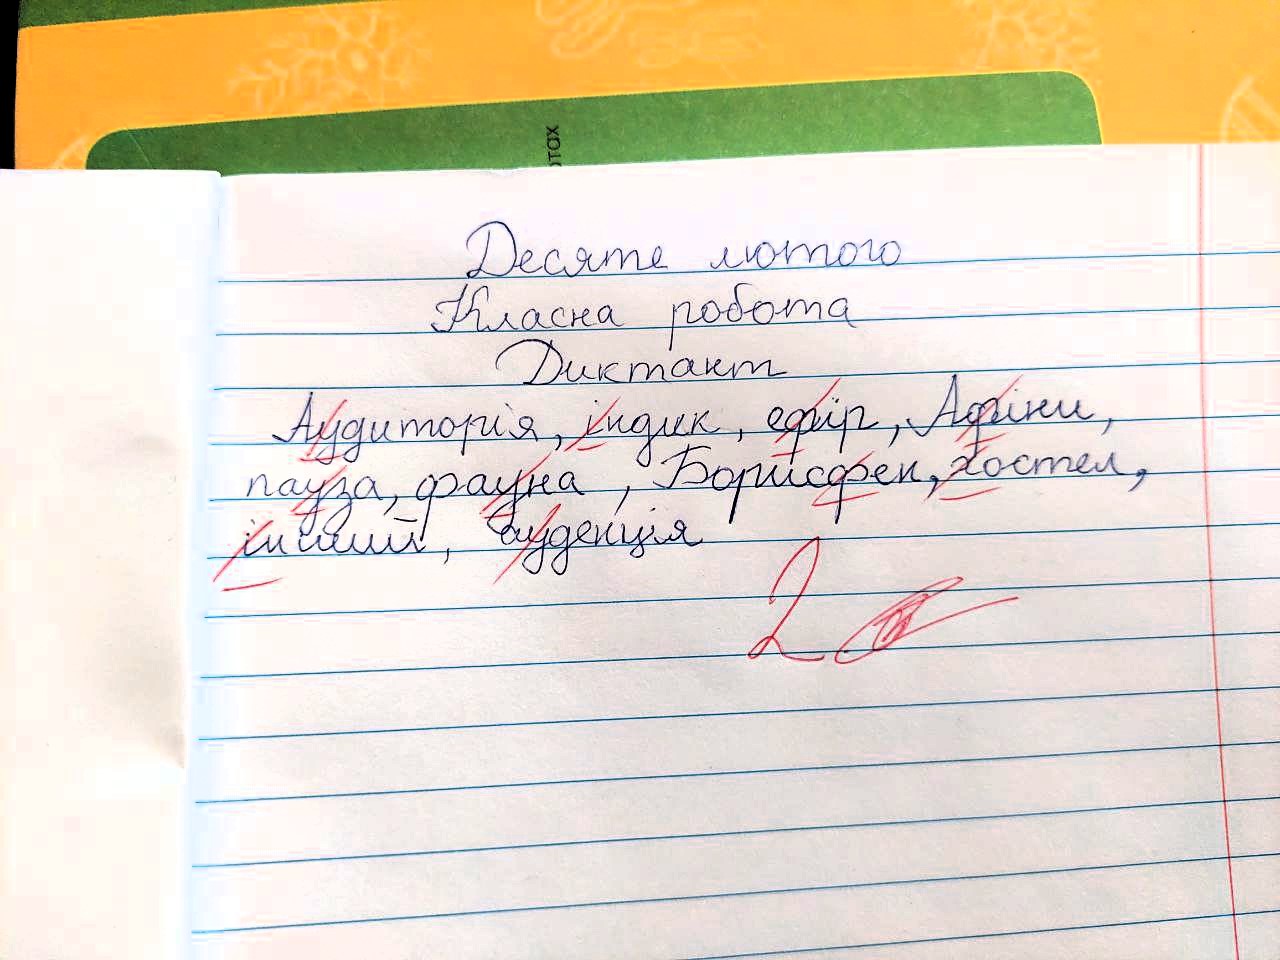 отах
Десяте лютого
Класна робота
Диктант
Аудиторія, індик, ефір, Афіни,
пауза, фауна, Борисфен, хостел,
інший, ауденція
2